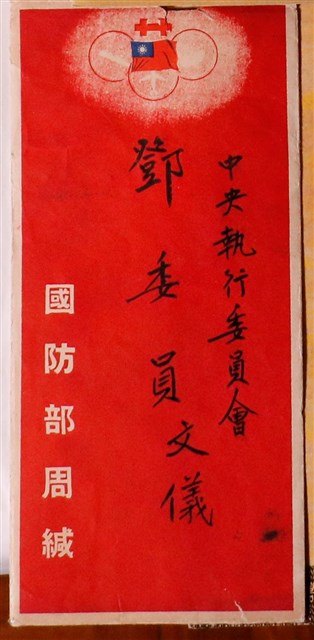 中央執行委員會
鄧委員文儀
國防部周緘